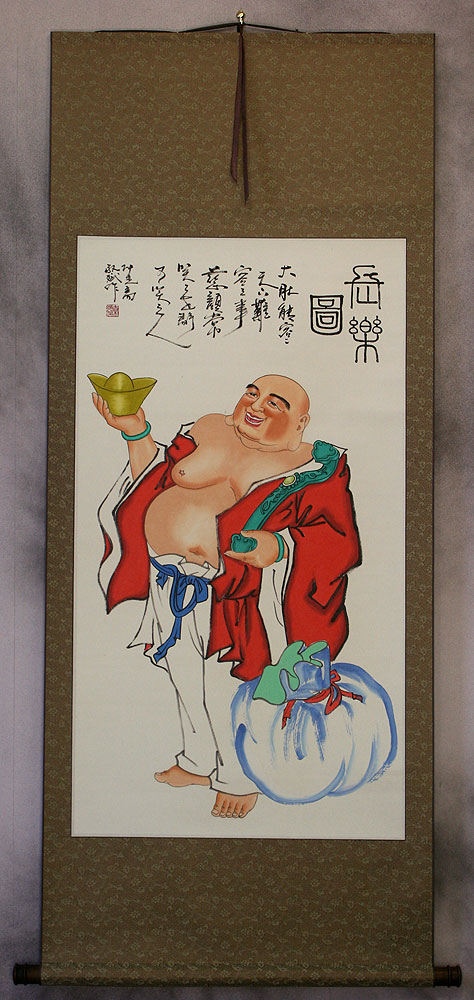 長樂
圖
大肚能容〻
天下難
容之事
慈顏常
笑〻世間
可笑之人